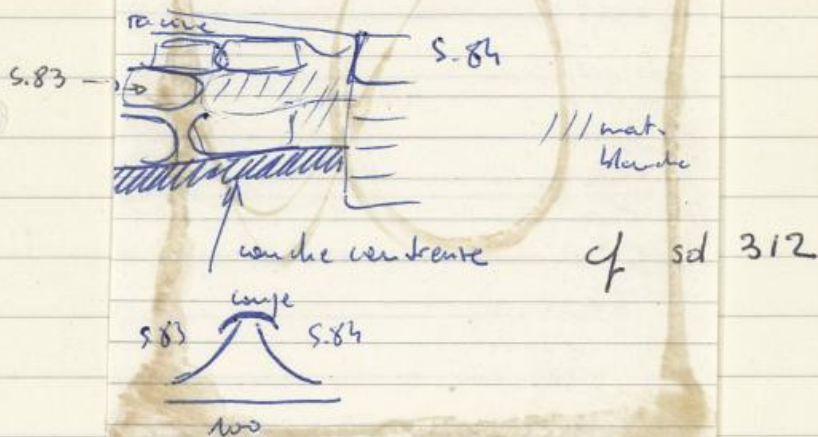 racine
S.84
S.83
/// mat.
blanche
couche cendreuse
cf sd 312
coupe
S.83 S.84
100